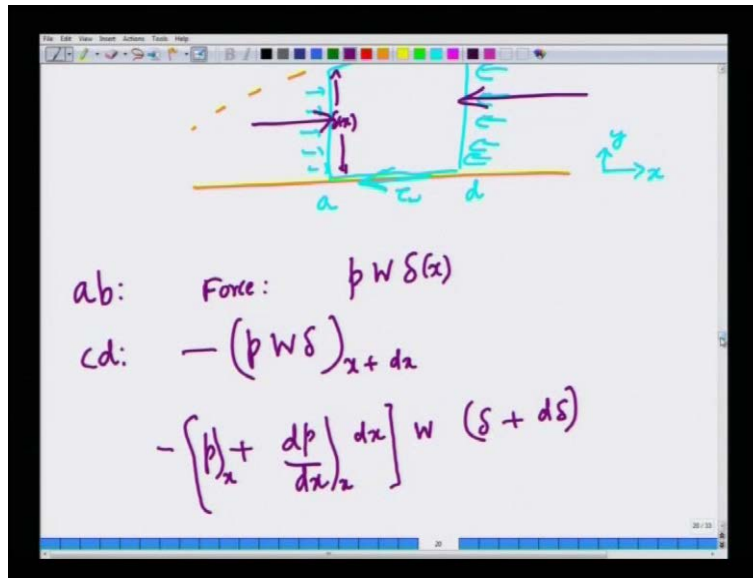 File Edit View Insert Actions Tools Help
B I
δ(x)
y
x
a τw d
ab: Force: p W δ(x)
cd: − (p W δ)x + dx
− [p)x + dp/dx)x dx] W (δ + dδ)
20 / 33
20